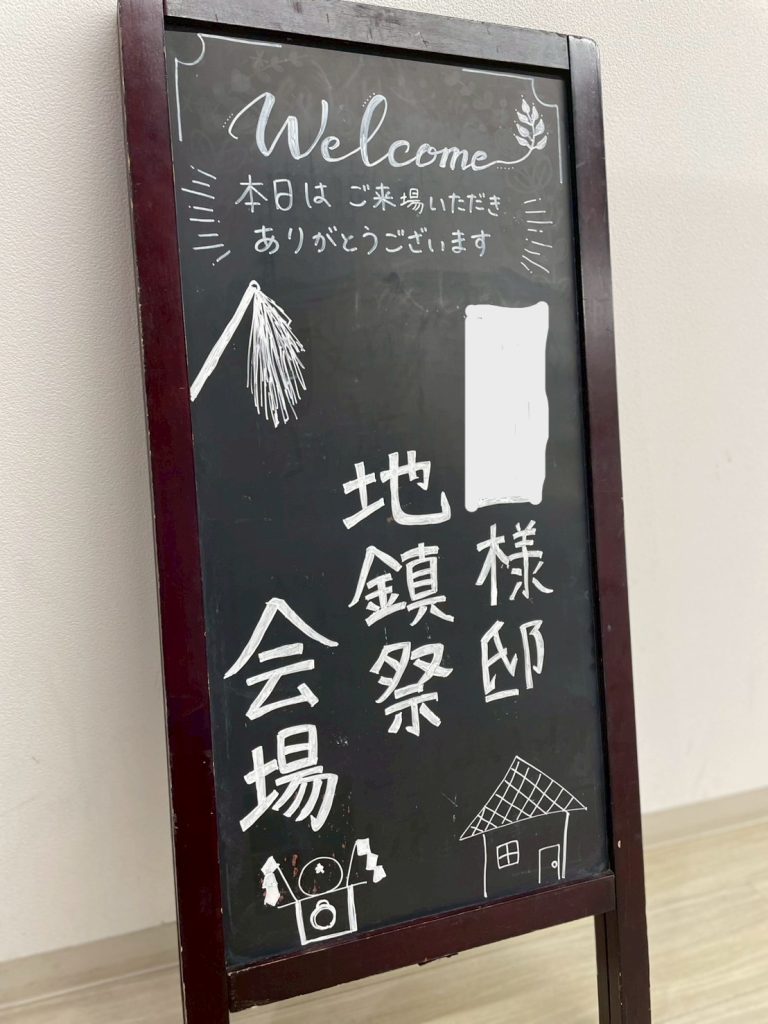 Welcome
本日は ご来場いただき
ありがとうございます
様邸
地鎮祭
会場